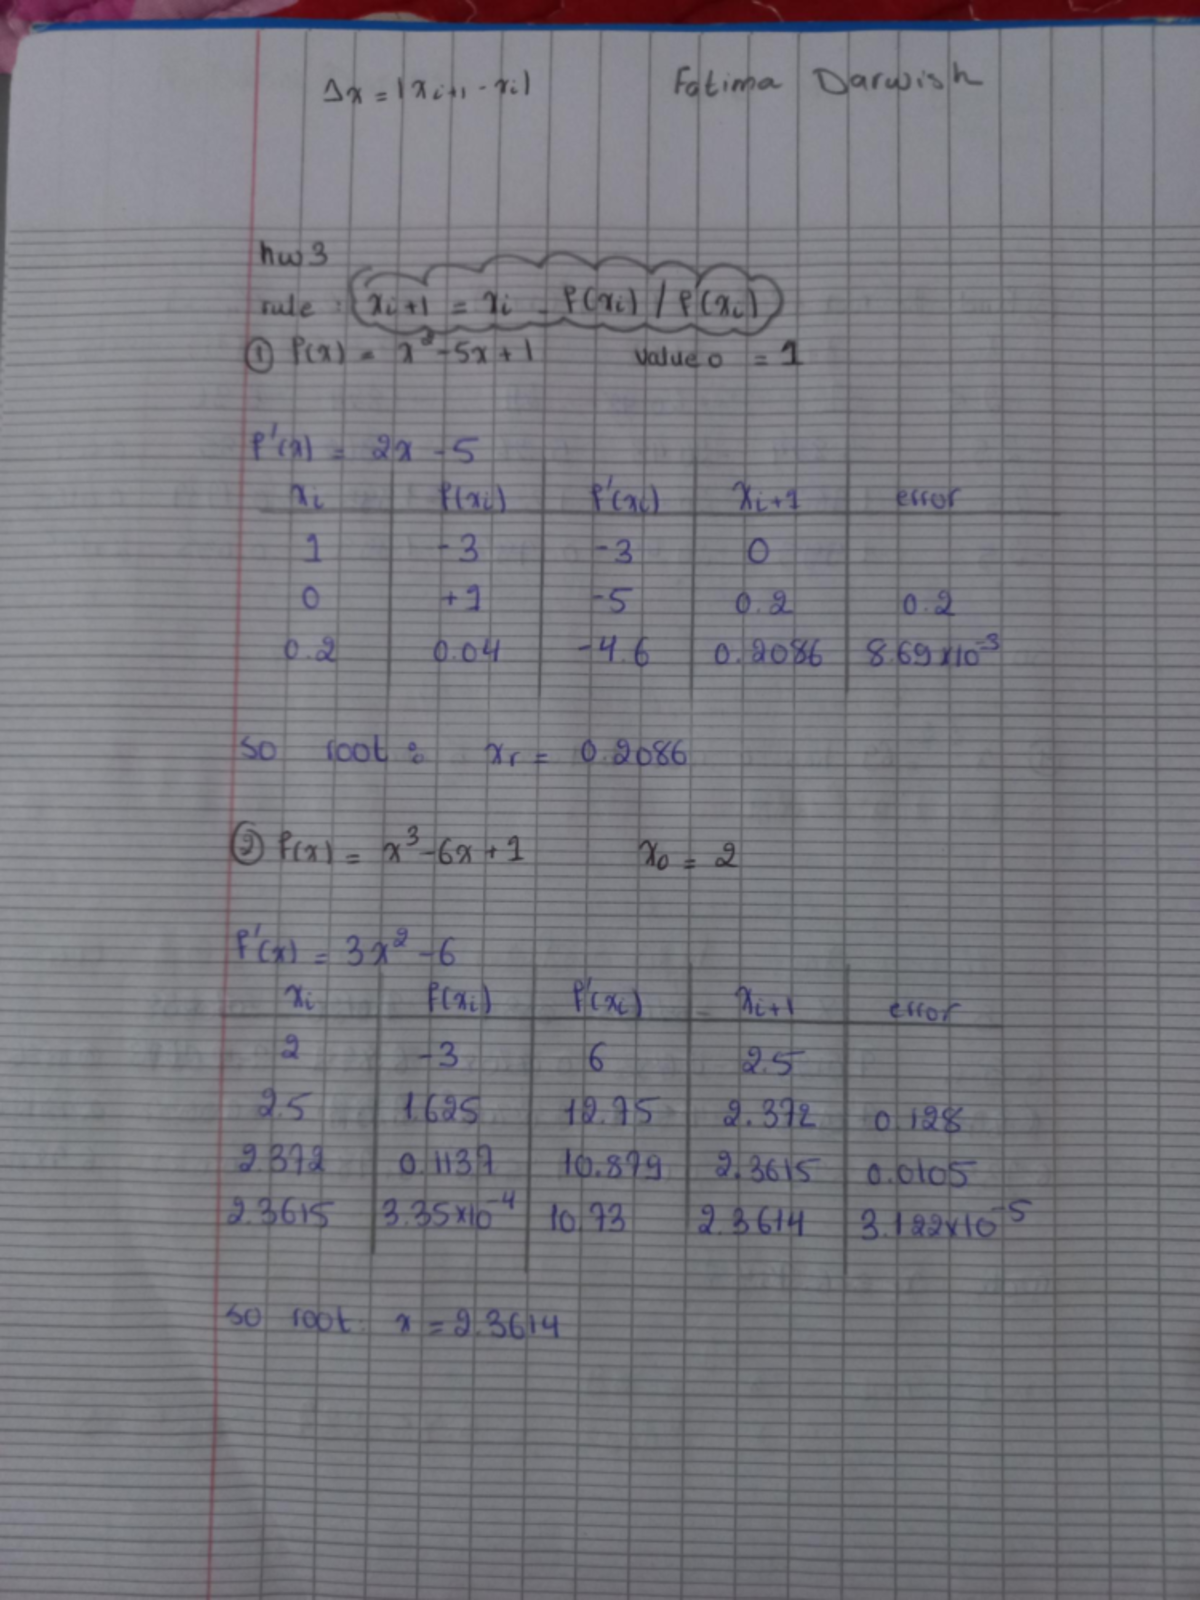 Δx = |xi+1 - xi| Fatima Darwish
hw3
rule : xi+1 = xi - f(xi) / f(xi)
① f(x) = x² - 5x + 1 value 0 = 1
f'(x) = 2x - 5
xi f(xi) f'(xi) xi+1 error
1 -3 -3 0
0 +1 -5 0.2 0.2
0.2 0.04 -4.6 0.2086 8.69x10⁻³
so root : xr = 0.2086
② f(x) = x³ - 6x + 1 x0 = 2
f'(x) = 3x² - 6
xi f(xi) f'(xi) xi+1 error
2 -3 6 2.5
2.5 1.625 12.75 2.372 0.128
2.372 0.1137 10.879 2.3615 0.0105
2.3615 3.35x10⁻⁴ 10.73 2.3614 3.122x10⁻⁵
so root: x = 2.3614